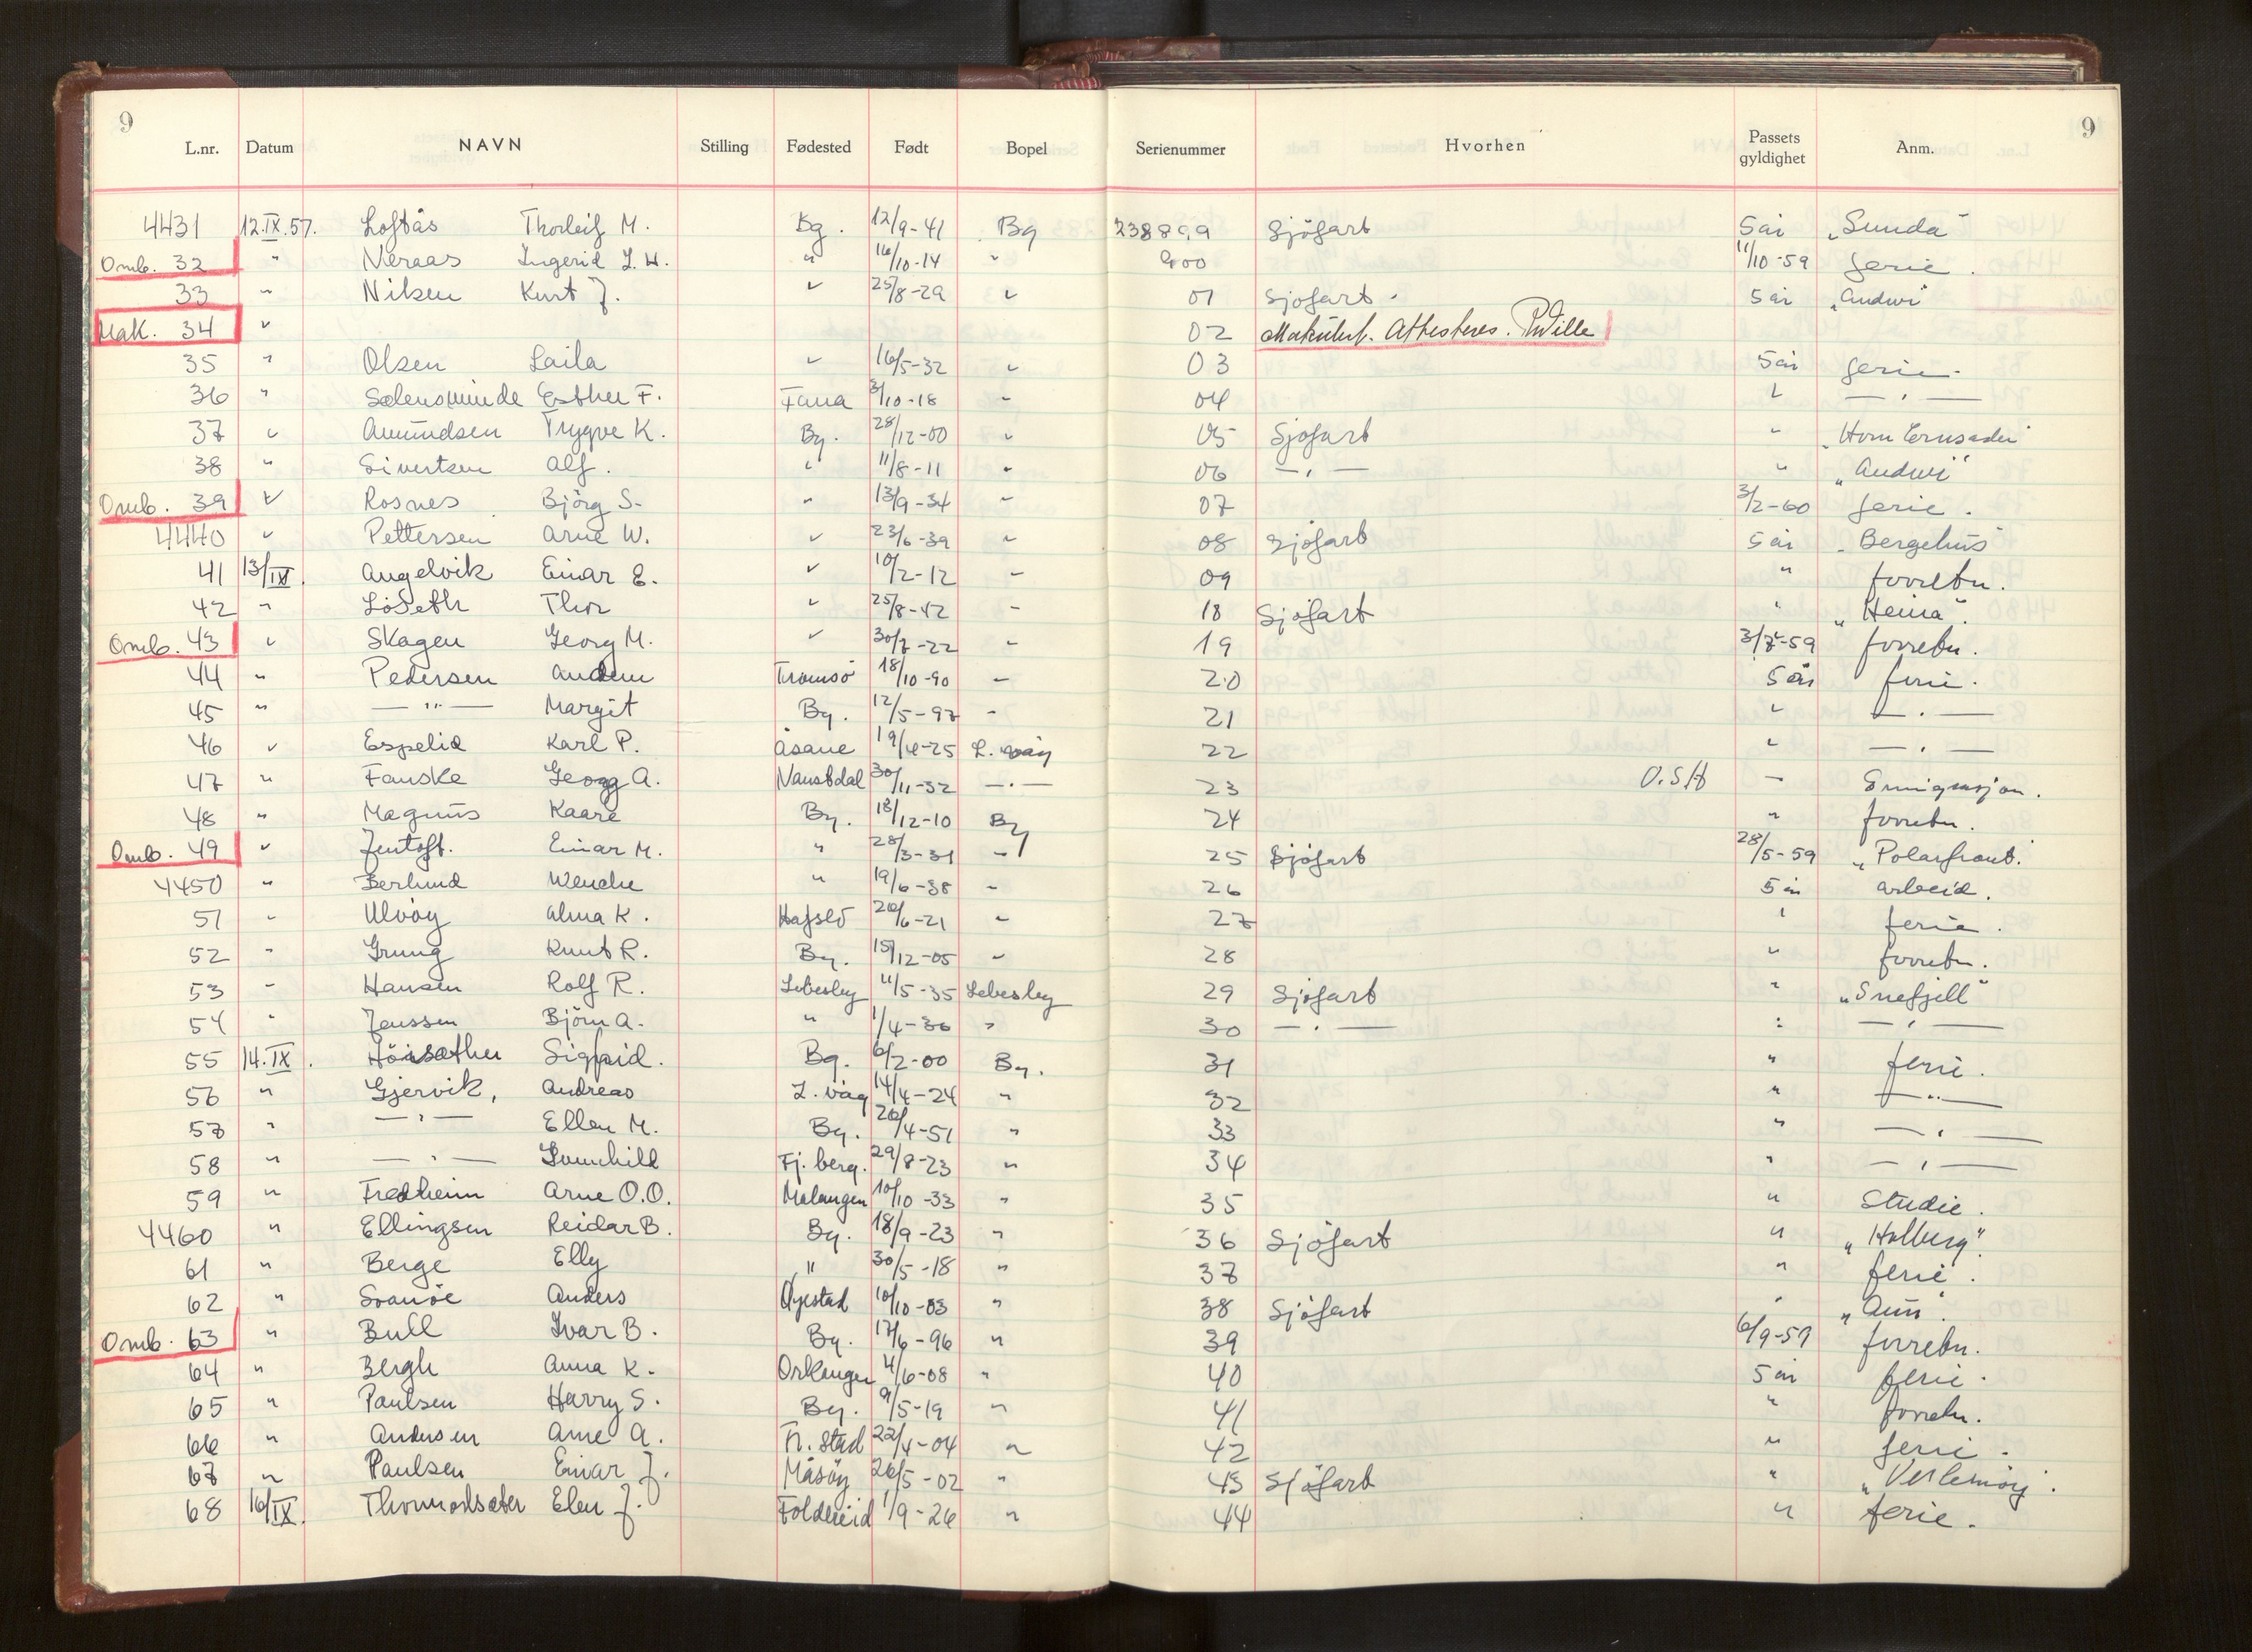 9 9
L.nr. Datum NAVN Stilling Fødested Født Bopel Serienummer Hvorhen Passets gyldighet Anm.
4431 12.IX.57. Loftås Thorleif M. Bg. 12/9-41 Bg 238899 Sjöfart 5 år "Sunda"
Omb. 32 " Neraas Ingerid L.H. " 16/10-14 " 900 11/10-59 ferie.
33 " Nilsen Kurt J. " 25/8-29 " 01 Sjöfart. 5 år "Andwi"
Mak. 34 " 02 Makulert. Attesteres. PWille
35 " Olsen Laila " 16/5-32 " 03 5 år ferie.
36 " Sælensminde Esther F. Fana 3/10-18 " 04 " — " —
37 " Amundsen Trygve K. Bg. 28/12-00 " 05 Sjöfart " "Horn Crusader"
38 " Sivertsen Alf. " 11/8-11 " 06 — " — " "Andwi"
Omb. 39 " Rosnes Björg S. " 13/9-34 " 07 3/2-60 ferie.
4440 " Pettersen Arne W. " 23/6-39 " 08 Sjöfart 5 år "Bergehus"
41 13/IX. Angelvik Einar E. " 10/2-12 " 09 " forretn.
42 " Löseth Thor " 25/8-42 " 18 Sjöfart " "Heina".
Omb. 43 " Skagen Georg M. " 30/7-22 " 19 3/7-59 forretn.
44 " Pedersen Tromsö 18/10-90 " 20 5 år ferie.
45 " — " — Margit Bg. 12/5-97 " 21 " — " —
46 " Espelid Karl P. Åsane 19/4-25 L. våg 22 " — " —
47 " Fauske Georg A. Naustdal 30/11-32 — " — 23 U.S.A " Emigrasjon.
48 " Magnus Kaare Bg. 18/12-10 Bg 24 " forretn.
Omb. 49 " Jentoft. Einar M. " 28/3-31 " 25 Sjöfart 28/5-59 "Polarfront."
4450 " Berlund Wenche " 19/6-38 " 26 5 år arbeid.
51 " Ulvöy Alma K. Hafslo 20/6-21 " 27 " ferie.
52 " Grung Knut R. Bg. 15/12-05 " 28 " forretn.
53 " Hansen Rolf R. Lebesby 11/5-35 Lebesby 29 Sjöfart " "Snefjell"
54 " Jenssen Björn A. " 1/4-36 " 30 — " — " — " —
55 14.IX. Höisæther Sigfrid. Bg. 6/2-00 Bg. 31 " ferie.
56 " Gjervik, Andreas L. våg 14/4-24 " 32 " — " —
57 " — " — Ellen M. Bg. 26/4-51 " 33 " — " —
58 " — " — Gunnhild Fj. berg. 29/8-23 " 34 " — " —
59 " Fredheim Arne O.O. Malangen 10/10-33 " 35 " Studie.
4460 " Ellingsen Reidar B. Bg. 18/9-23 " 36 Sjöfart " "Holberg".
61 " Berge Elly " 30/5-18 " 37 " ferie.
62 " Svanöe Anders Öyestad 10/10-03 " 38 Sjöfart " "Aun".
Omb. 63 " Bull Ivar B. Bg. 17/6-96 " 39 6/9-59 forretn.
64 " Bergh Anna K. Orkanger 4/6-08 " 40 5 år ferie.
65 " Paulsen Harry S. Bg. 9/5-19 " 41 " forretn.
66 " Andersen Arne A. Fr. stad 22/4-04 " 42 " ferie.
67 " Paulsen Einar J. Måsöy 26/5-02 " 43 Sjöfart "
68 16/IX. Thormodsæter Elen J. Foldereid 1/9-26 " 44 " ferie.